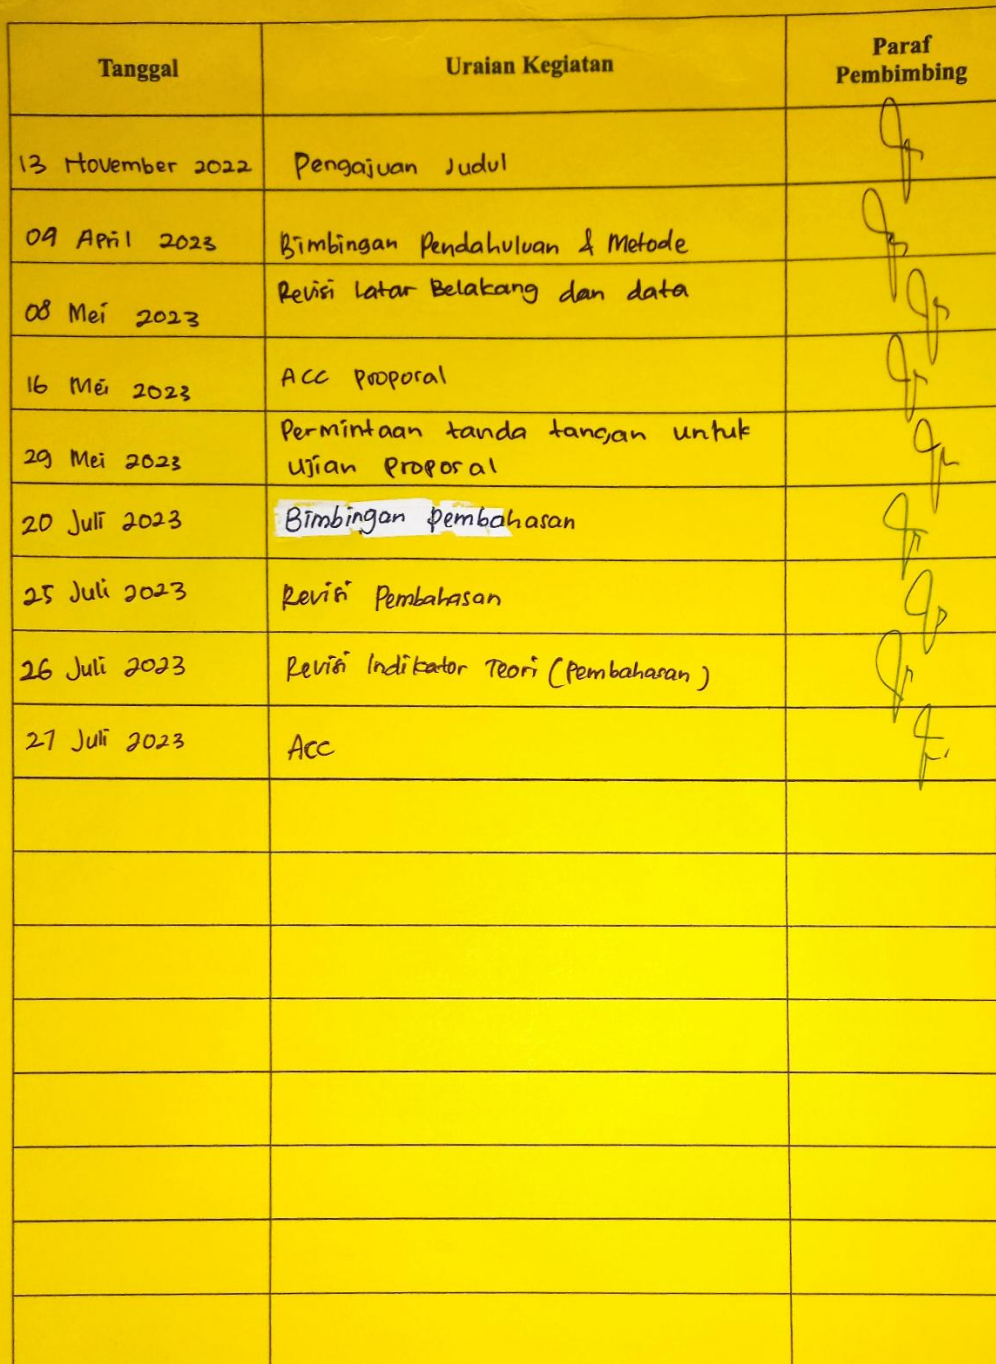 Tanggal Uraian Kegiatan Paraf Pembimbing
13 November 2022 Pengajuan Judul
09 April 2023 Bimbingan Pendahuluan & Metode
08 Mei 2023 Revisi Latar Belakang dan data
16 Mei 2023 ACC Proposal
29 Mei 2023 Permintaan tanda tangan untuk
Ujian Proposal
20 Juli 2023 Bimbingan Pembahasan
25 Juli 2023 Revisi Pembahasan
26 Juli 2023 Revisi Indikator Teori (Pembahasan)
27 Juli 2023 Acc